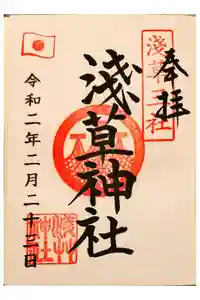 奉拝
淺草三社
淺草神社
令和二年二月二十二日
淺草神社